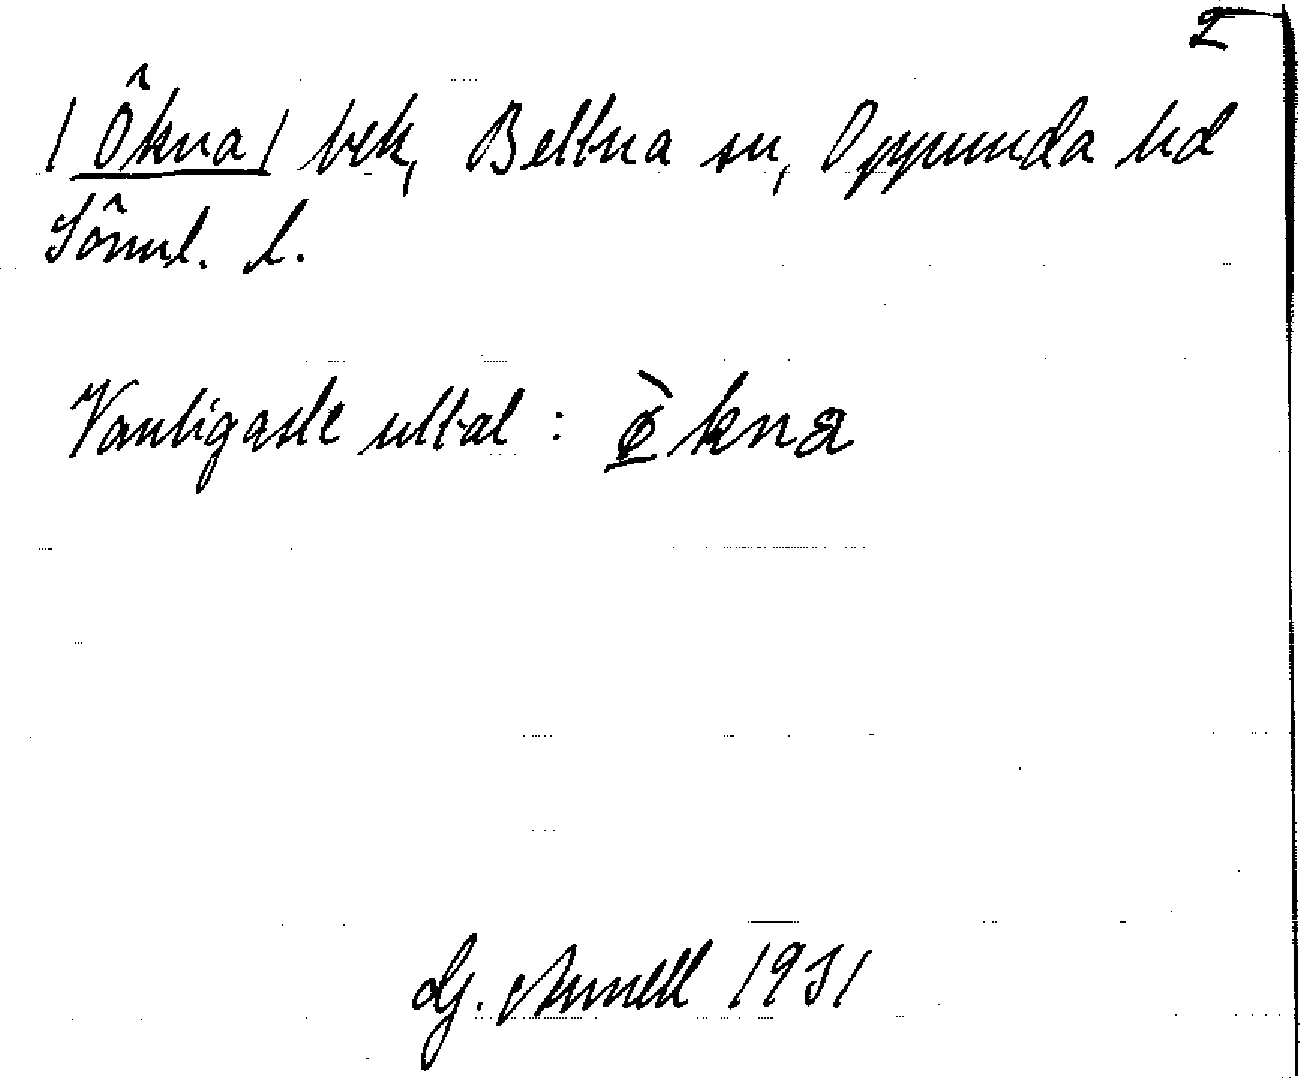 2
/Ökna/ bek, Bettna sn, Oppunda hd
Söml. l.
Vanligaste uttal: ø̀kna
G. Annell 1931